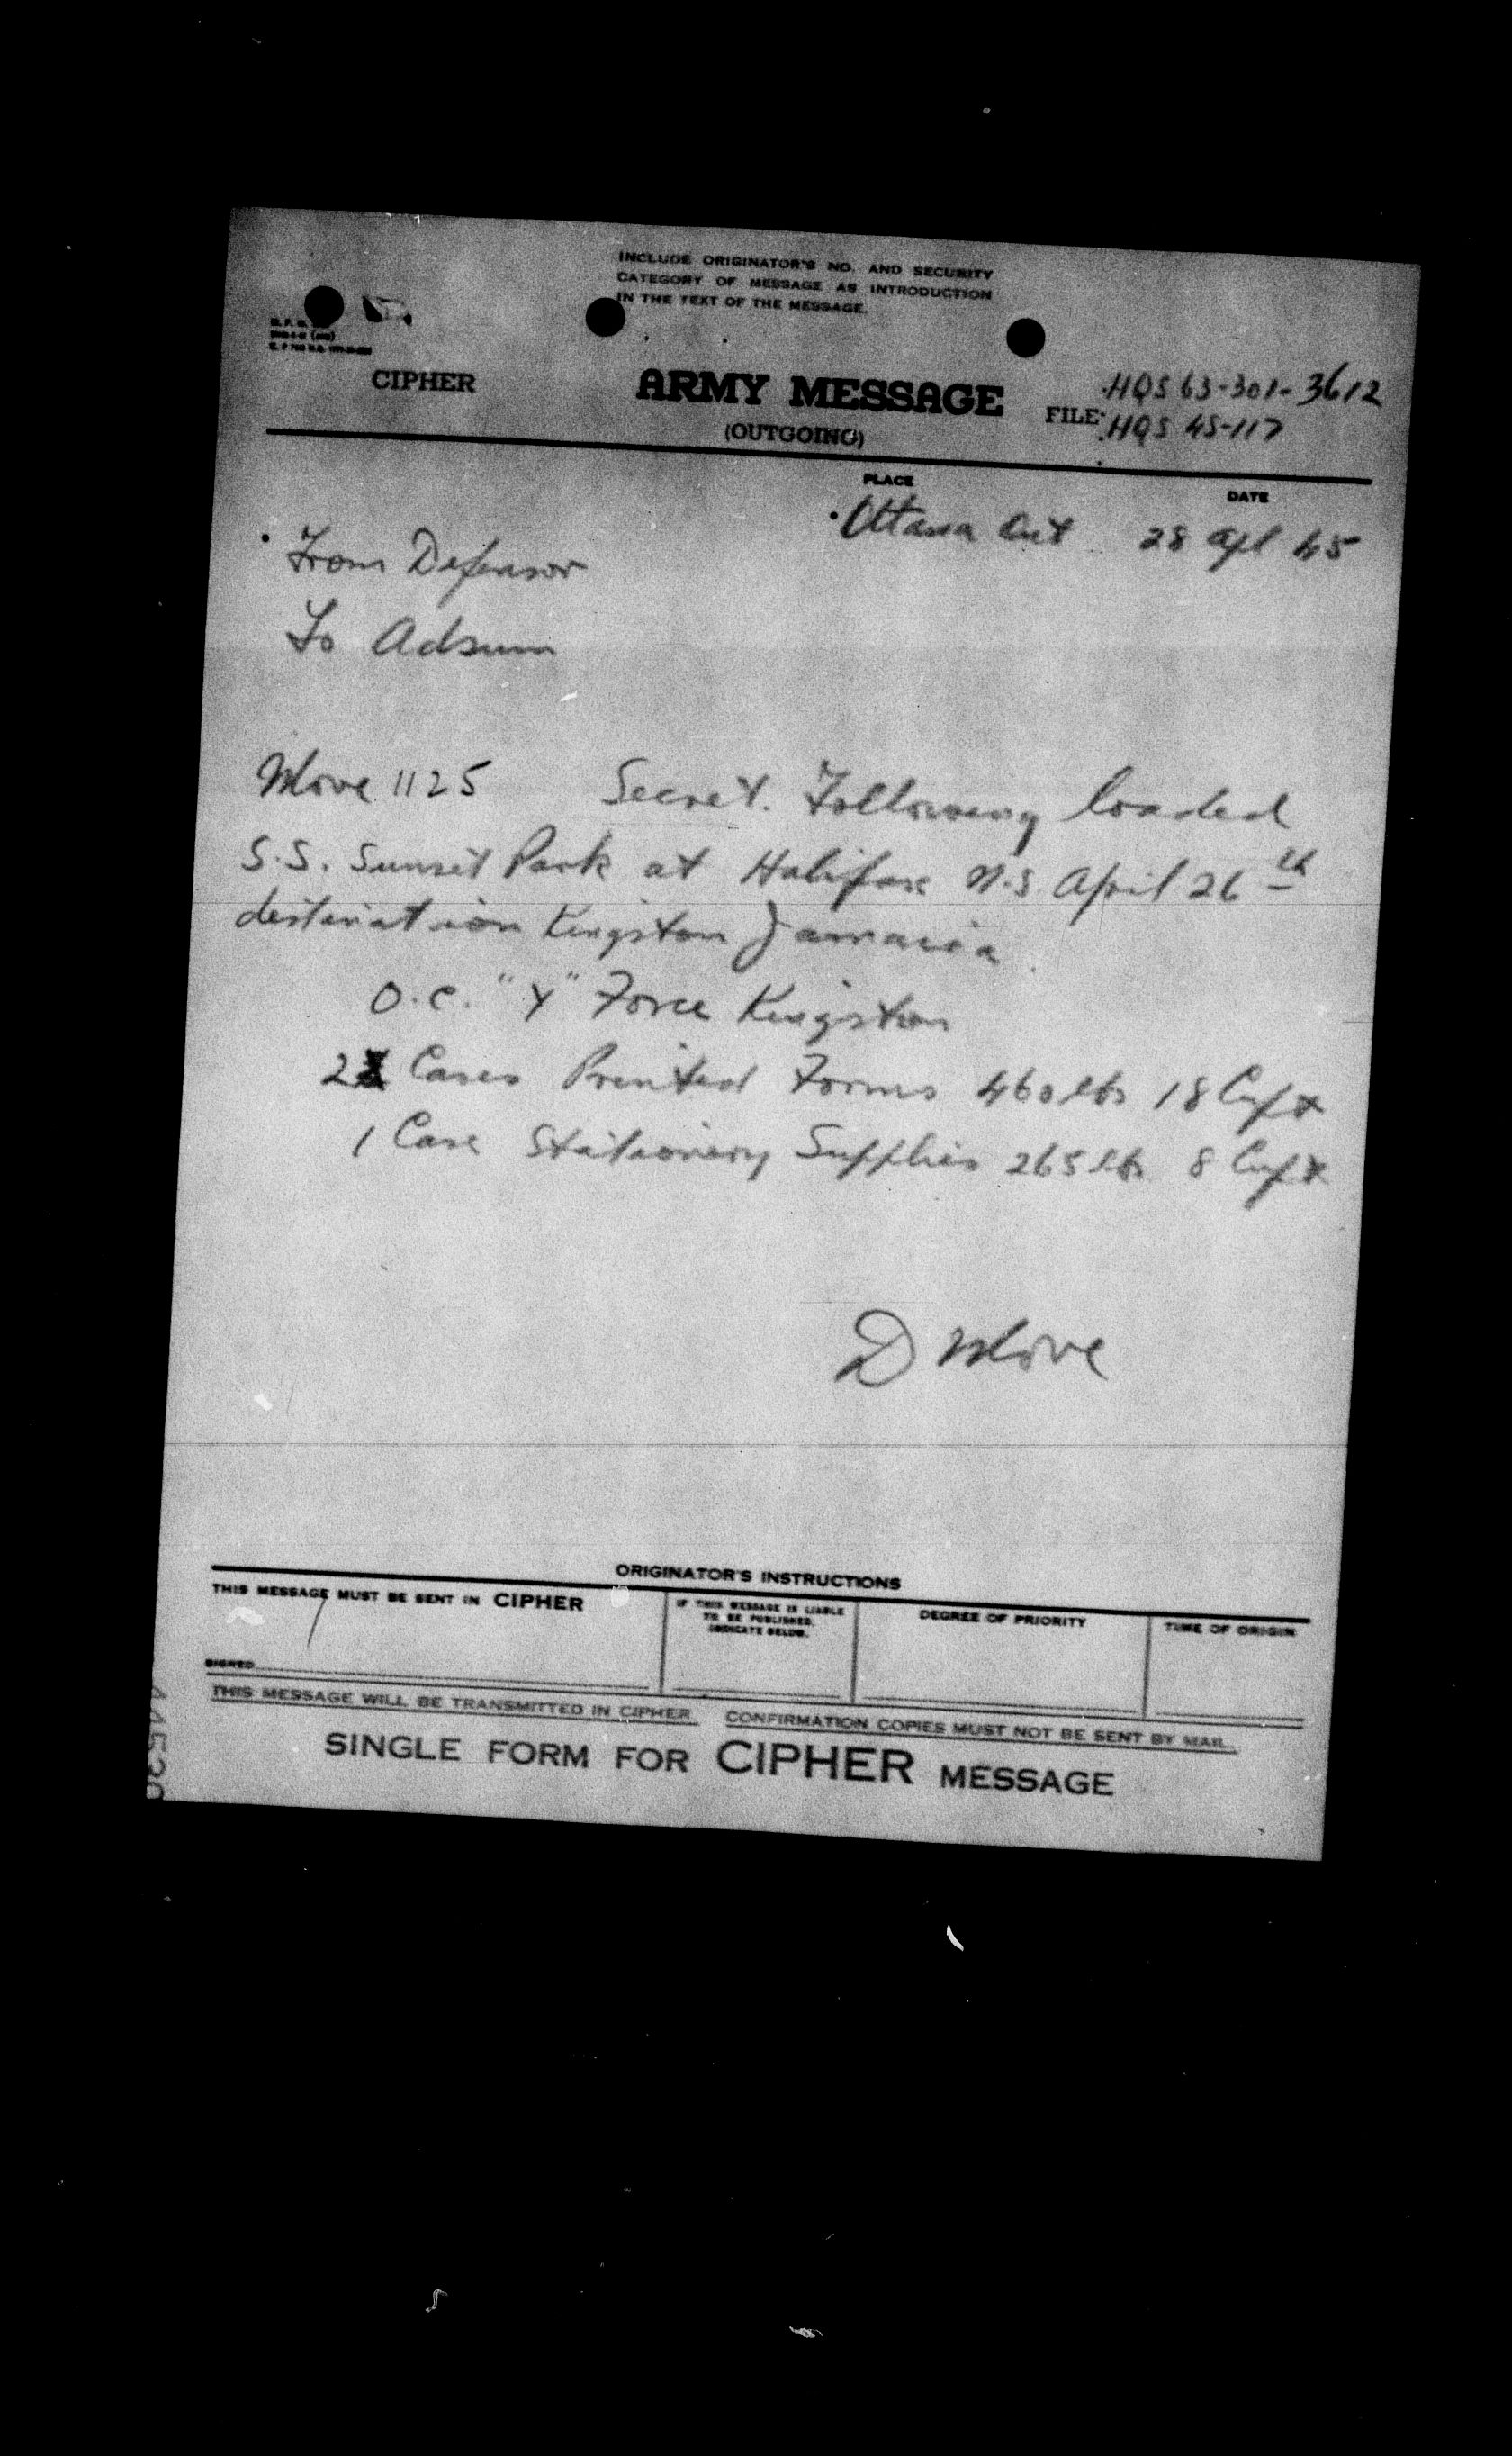 INCLUDE ORIGINATOR'S NO. AND SECURITY
CATEGORY OF MESSAGE AS INTRODUCTION
IN THE TEXT OF THE MESSAGE.
CIPHER
ARMY MESSAGE
(OUTGOING)
FILE
HQS 63-301-3612
HQS 45-117
PLACE
DATE
Ottawa Ont 28 Apl 45
From Defensor
To Adsum
Move 1125 Secret. Following loaded
S.S. Sunset Park at Halifax N.S. April 26th
destination Kingston Jamaica
O.C. "Y" Force Kingston
2 Cases Printed Forms 460 lbs 18 Cuft
1 Case Stationery Supplies 265 lbs 8 Cuft
D Move
ORIGINATOR'S INSTRUCTIONS
THIS MESSAGE MUST BE SENT IN CIPHER
IF THIS MESSAGE IS LIABLE
TO BE PUBLISHED,
INDICATE BELOW.
DEGREE OF PRIORITY
TIME OF ORIGIN
SIGNED
THIS MESSAGE WILL BE TRANSMITTED IN CIPHER. CONFIRMATION COPIES MUST NOT BE SENT BY MAIL.
SINGLE FORM FOR CIPHER MESSAGE